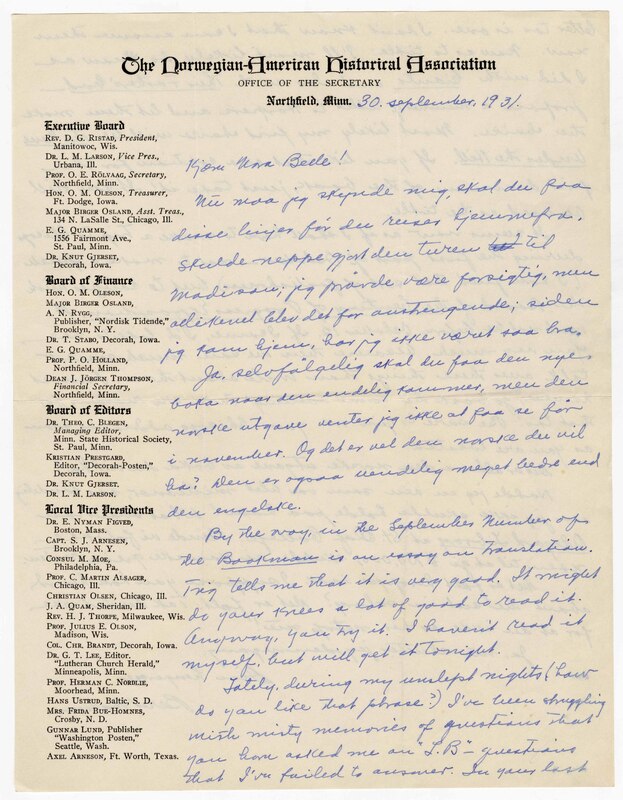 The Norwegian-American Historical Association
OFFICE OF THE SECRETARY
Northfield, Minn. 30. september, 1931.
Executive Board
REV. D. G. RISTAD, President,
Manitowoc, Wis.
DR. L. M. LARSON, Vice Pres.,
Urbana, Ill.
PROF. O. E. RÖLVAAG, Secretary,
Northfield, Minn.
HON. O. M. OLESON, Treasurer,
Ft. Dodge, Iowa.
MAJOR BIRGER OSLAND, Asst. Treas.,
134 N. LaSalle St., Chicago, Ill.
E. G. QUAMME,
1556 Fairmont Ave.,
St. Paul, Minn.
DR. KNUT GJERSET,
Decorah, Iowa.
Board of Finance
HON. O. M. OLESON,
MAJOR BIRGER OSLAND,
A. N. RYGG,
Publisher, "Nordisk Tidende,"
Brooklyn, N. Y.
DR. T. STABO, Decorah, Iowa.
E. G. QUAMME,
PROF. P. O. HOLLAND,
Northfield, Minn.
DEAN J. JÖRGEN THOMPSON,
Financial Secretary,
Northfield, Minn.
Board of Editors
DR. THEO. C. BLEGEN,
Managing Editor,
Minn. State Historical Society,
St. Paul, Minn.
KRISTIAN PRESTGARD,
Editor, "Decorah-Posten,"
Decorah, Iowa.
DR. KNUT GJERSET.
DR. L. M. LARSON.
Local Vice Presidents
DR. E. NYMAN FIGVED,
Boston, Mass.
CAPT. S. J. ARNESEN,
Brooklyn, N. Y.
CONSUL M. MOE,
Philadelphia, Pa.
PROF. C. MARTIN ALSAGER,
Chicago, Ill.
CHRISTIAN OLSEN, Chicago, Ill.
J. A. QUAM, Sheridan, Ill.
REV. H. J. THORPE, Milwaukee, Wis.
PROF. JULIUS E. OLSON,
Madison, Wis.
COL. CHR. BRANDT, Decorah, Iowa.
DR. G. T. LEE, Editor,
"Lutheran Church Herald,"
Minneapolis, Minn.
PROF. HERMAN C. NORDLIE,
Moorhead, Minn.
HANS USTRUD, Baltic, S. D.
MRS. FRIDA BUE-HOMNES,
Crosby, N. D.
GUNNAR LUND, Publisher
"Washington Posten,"
Seattle, Wash.
AXEL ARNESON, Ft. Worth, Texas.
Kjære Nora Bede!
Nu maa jeg skynde mig, skal du faa
disse linjer før du reiser hjemmefra.
Skulde neppe gjort den turen til
Madison; jeg prøvde være forsigtig, men
allikevel blev det for anstrengende; siden
jeg kom hjem, har jeg ikke været saa bra.
Ja, selvfølgelig skal du faa den nye
boka naar den endelig kommer, men den
norske utgave venter jeg ikke at faa se før
i november. Og det er vel den norske du vil
ha? Den er ogsaa uendelig meget bedre end
den engelske.
By the way, in the September Number of
the Bookman is an essay on Translation.
Trig tells me that it is very good. It might
do your knees a lot of good to read it.
Anyway, you try it. I haven't read it
myself, but will get it tonight.
Lately, during my unslept nights (how
do you like that phrase?) I've been struggling
with misty memories of questions that
you have asked me on "P.B" - questions
that I've failed to answer. In your last